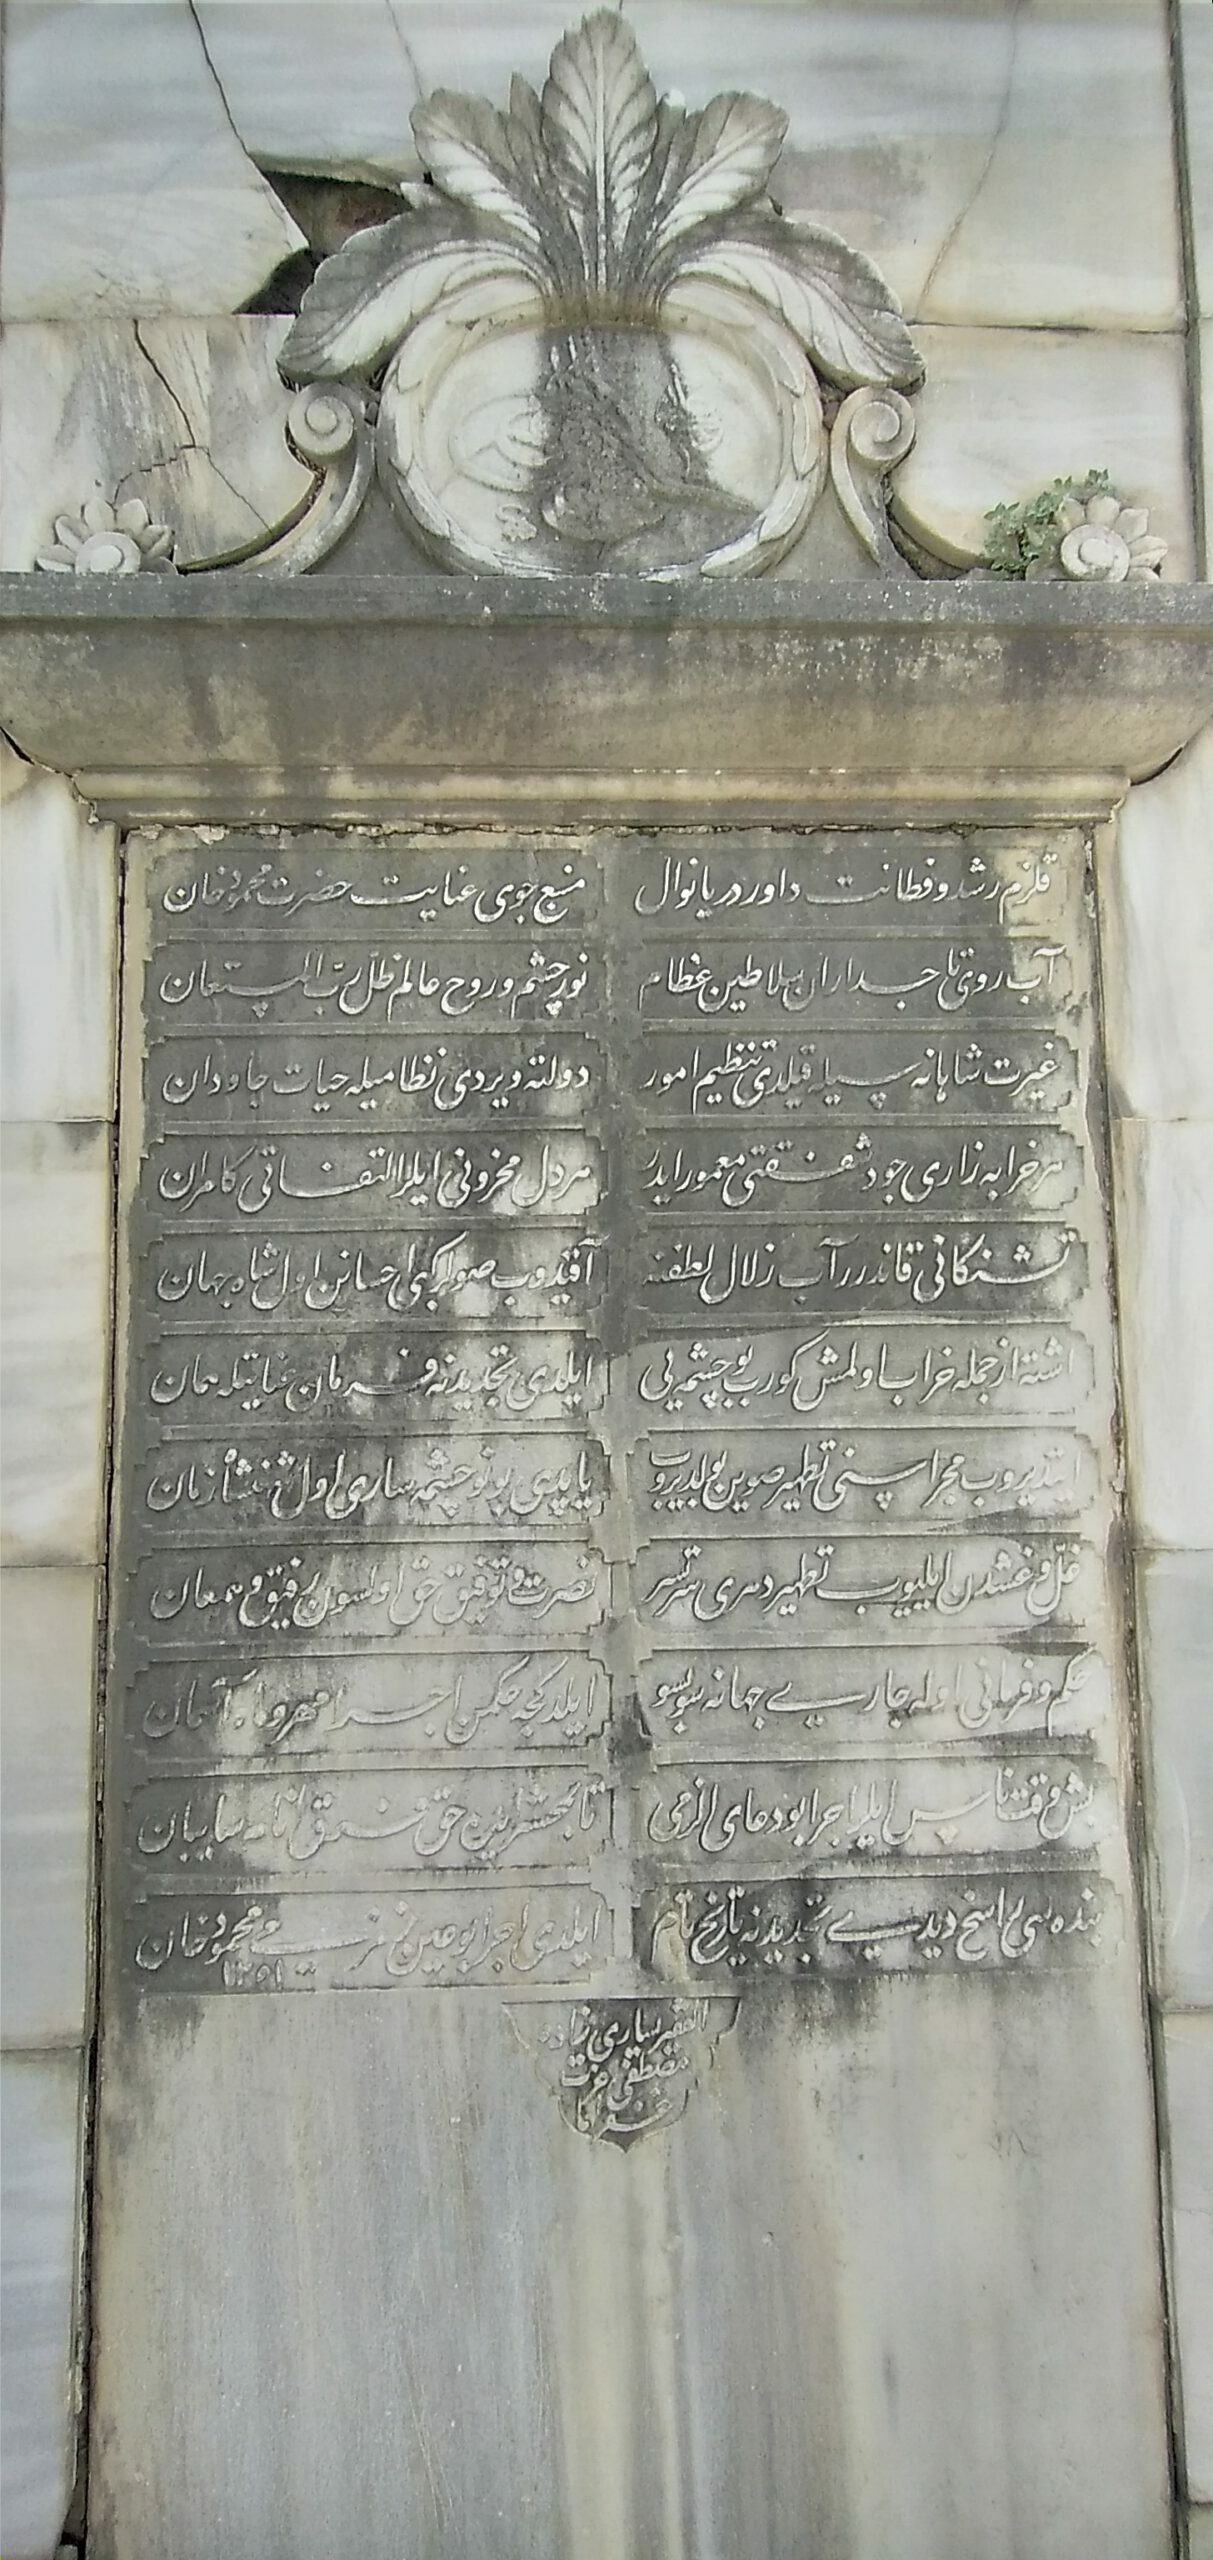 قلزم رشد و فطانت داور دریا نوال
منبع جوی عنایت حضرت محمود خان
آب روی تاجداران سلاطین عظام
نور چشم و روح عالم ظل رب المستعان
غیرت شاهانه سیله قیلدی تنظیم امور
دولته ویردی نظامیله حیات جاودان
هر خرابه زاری جود شفقتی معمور ایدر
هر دل محزونی ایلر التفاتی کامران
تشنکانی قاندرر آب زلال لطفنه
آقیدوب صولر کبی احسانن اول شاه جهان
اشته از جمله خراب اولمش کورب بو چشمه یی
ایلدی تجدیدنه فرمان عنایتله همان
ایتدیروب مجراسنی تطهیر صوین بولدیروب
یاپدی بو نو چشمه ساری اول شهنشاه زمان
غل و غشدن ایلیوب تطهیر دهری سرتسر
نصرت و توفیق حق اولسون رفیق و همعان
حکم و فرمانی اوله جاری جهانه سو بسو
ایلدکجه حکمن اجرا مهر و ماه آسمان
بش وقت ناس ایلر اجرا بو دعای الزمی
تا بحشر ایده حق فرق انامه سایبان
بنده سی راسخ دیدی تجدیدنه تاریخ تام
ایلدی اجرا بو عین زمزمی محمود خان
١٢٥١
الفقیر یساری زاده
مصطفی عزت
غفرلهما